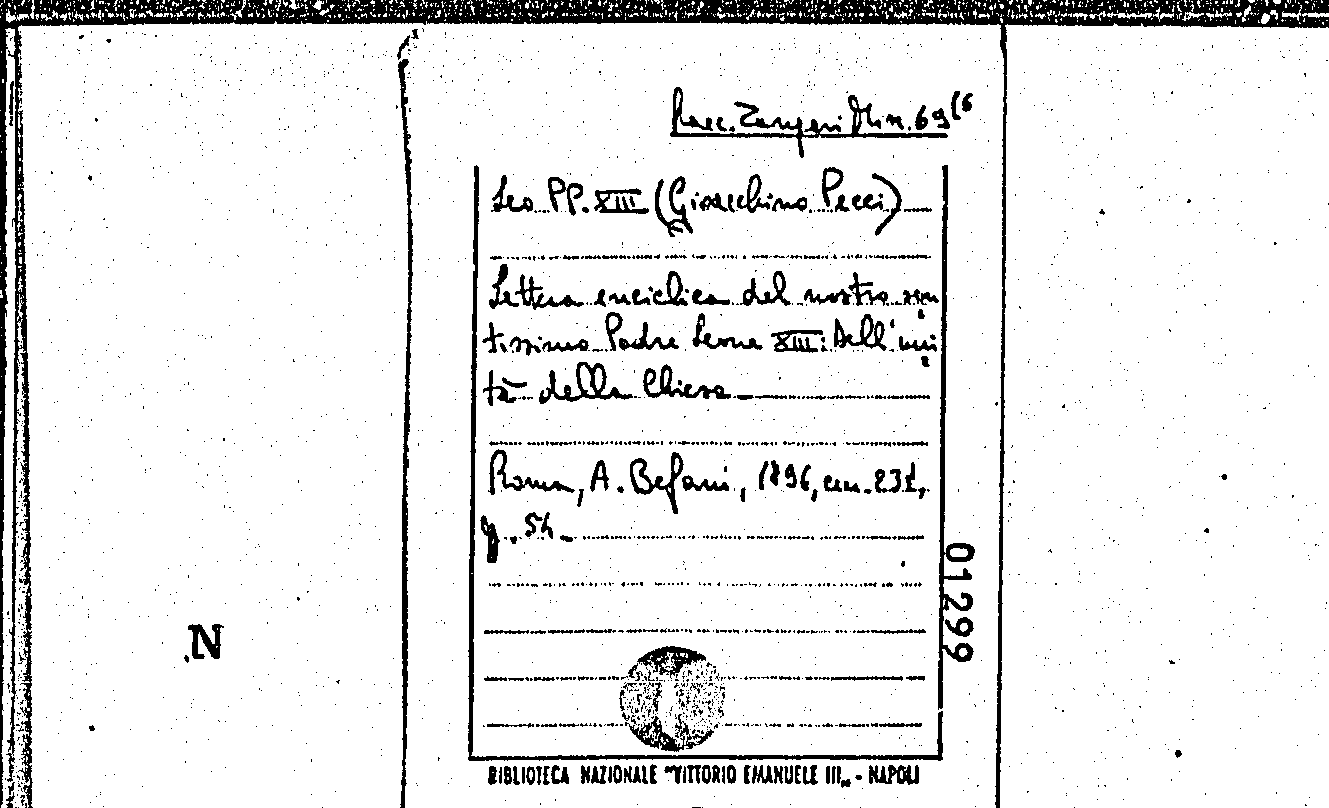 Racc. Zangari Min. 69(6
Leo PP. XIII (Gioacchino Pecci)
Lettera enciclica del nostro san
tissimo Padre Leone XIII: Dell'uni
tà della Chiesa
Roma, A. Befani, 1896, cm. 23½,
p. 54.
01299
N
BIBLIOTECA NAZIONALE "VITTORIO EMANUELE III„ - NAPOLI